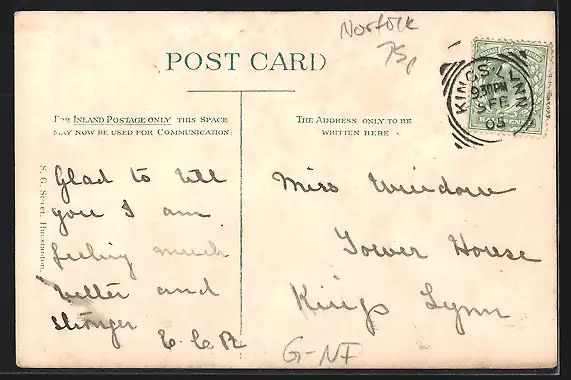 Norfolk
75p
POST CARD
KING'S LYNN
9.30PM
SP 6
05
For INLAND POSTAGE ONLY THIS SPACE
MAY NOW BE USED FOR COMMUNICATION.
THE ADDRESS ONLY TO BE
WRITTEN HERE
S. G. Street, Hunstanton.
Glad to tell
you I am
feeling much
better and
stronger
E. C. R
Miss
Tower House
Kings Lynn
G-NF